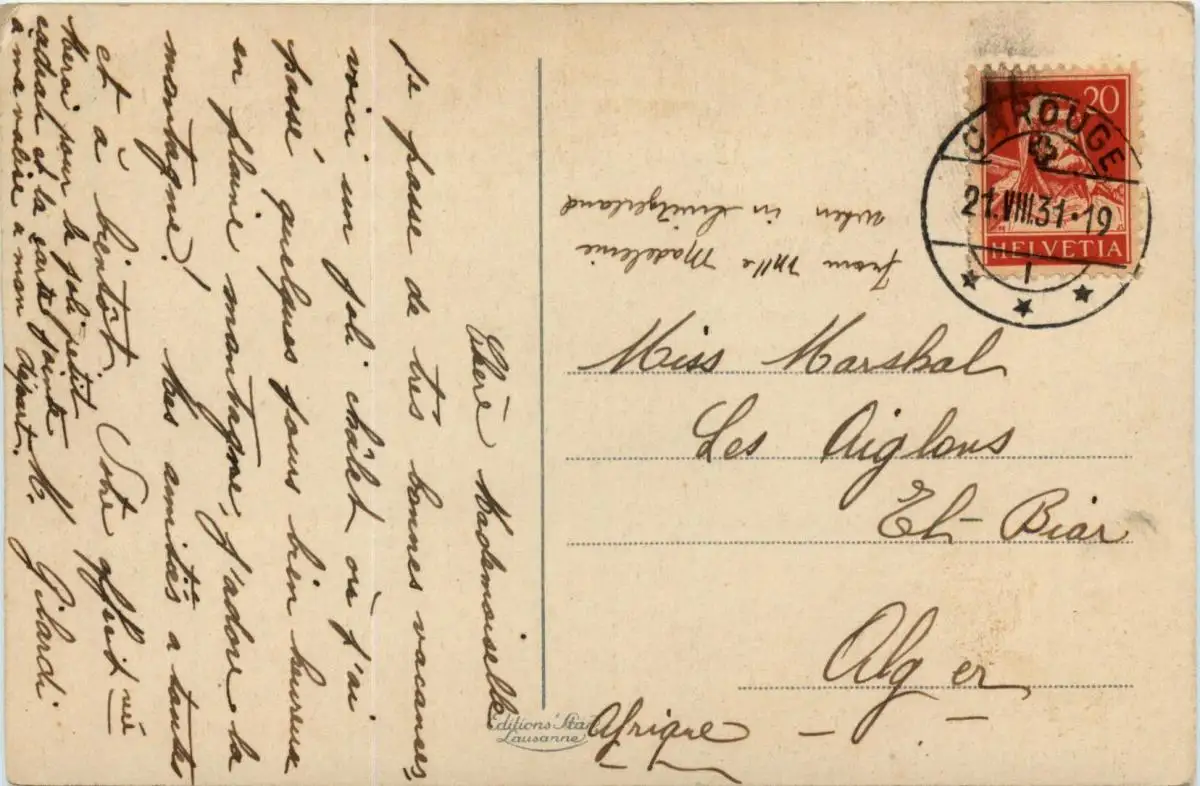 Chère Mademoiselle
je passe de très bonnes vacances,
voici un joli châlet où j'ai
passé quelques jours bien heureux
en pleine montagne, j'adore la
montagne! Mes amitiés à toutes
et à bientôt. Votre
M. Gilardi
Merci pour le joli petit
cadeau et la carte jointe
à ma valise à mon départ.
Editions
Lausanne
from Mlle Madeleine
when in Switzerland
CAROUGE
21.VIII.31-19
1
20
HELVETIA
Miss Marshal
Les Aiglons
El-Biar
Alger
Afrique